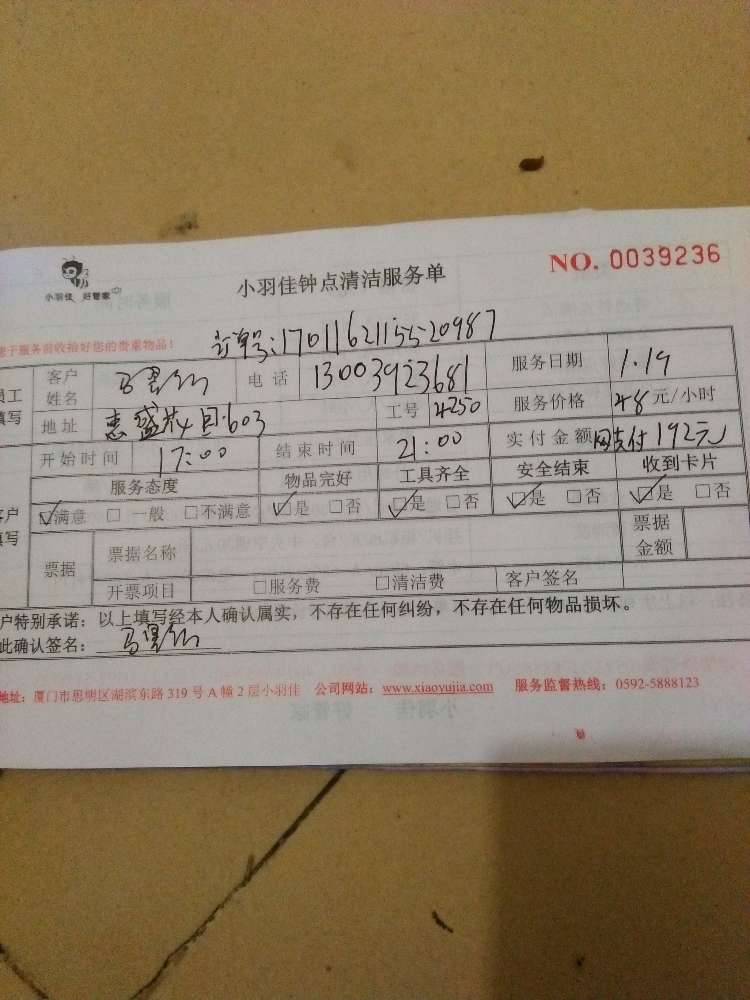 小羽佳 好管家
小羽佳钟点清洁服务单
NO. 0039236
于服务前收拾好您的贵重物品！
订单号:1701162115520987
员工填写
客户姓名 马 电话 13003923681 服务日期 1.19
地址 惠盛 603 工号 4250 服务价格 48元/小时
开始时间 17:00 结束时间 21:00 实付金额 网支付192元
客户填写
服务态度 物品完好 工具齐全 安全结束 收到卡片
☑满意 □一般 □不满意 ☑是 □否 ☑是 □否 ☑是 □否 ☑是 □否
票据 票据名称 票据金额
开票项目 □服务费 □清洁费 客户签名
户特别承诺：以上填写经本人确认属实，不存在任何纠纷，不存在任何物品损坏。
此确认签名：马
地址：厦门市思明区湖滨东路 319 号 A 幢 2 层小羽佳 公司网站：www.xiaoyujia.com 服务监督热线：0592-5888123